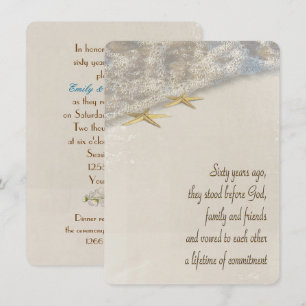 In honor
sixty year
pl
Emily &
as they re
on Saturda
Two thou
at six o'c
Seas
1255
You
Dinner re
the ceremony
1266
Sixty years ago,
they stood before God,
family and friends
and vowed to each other
a lifetime of commitment